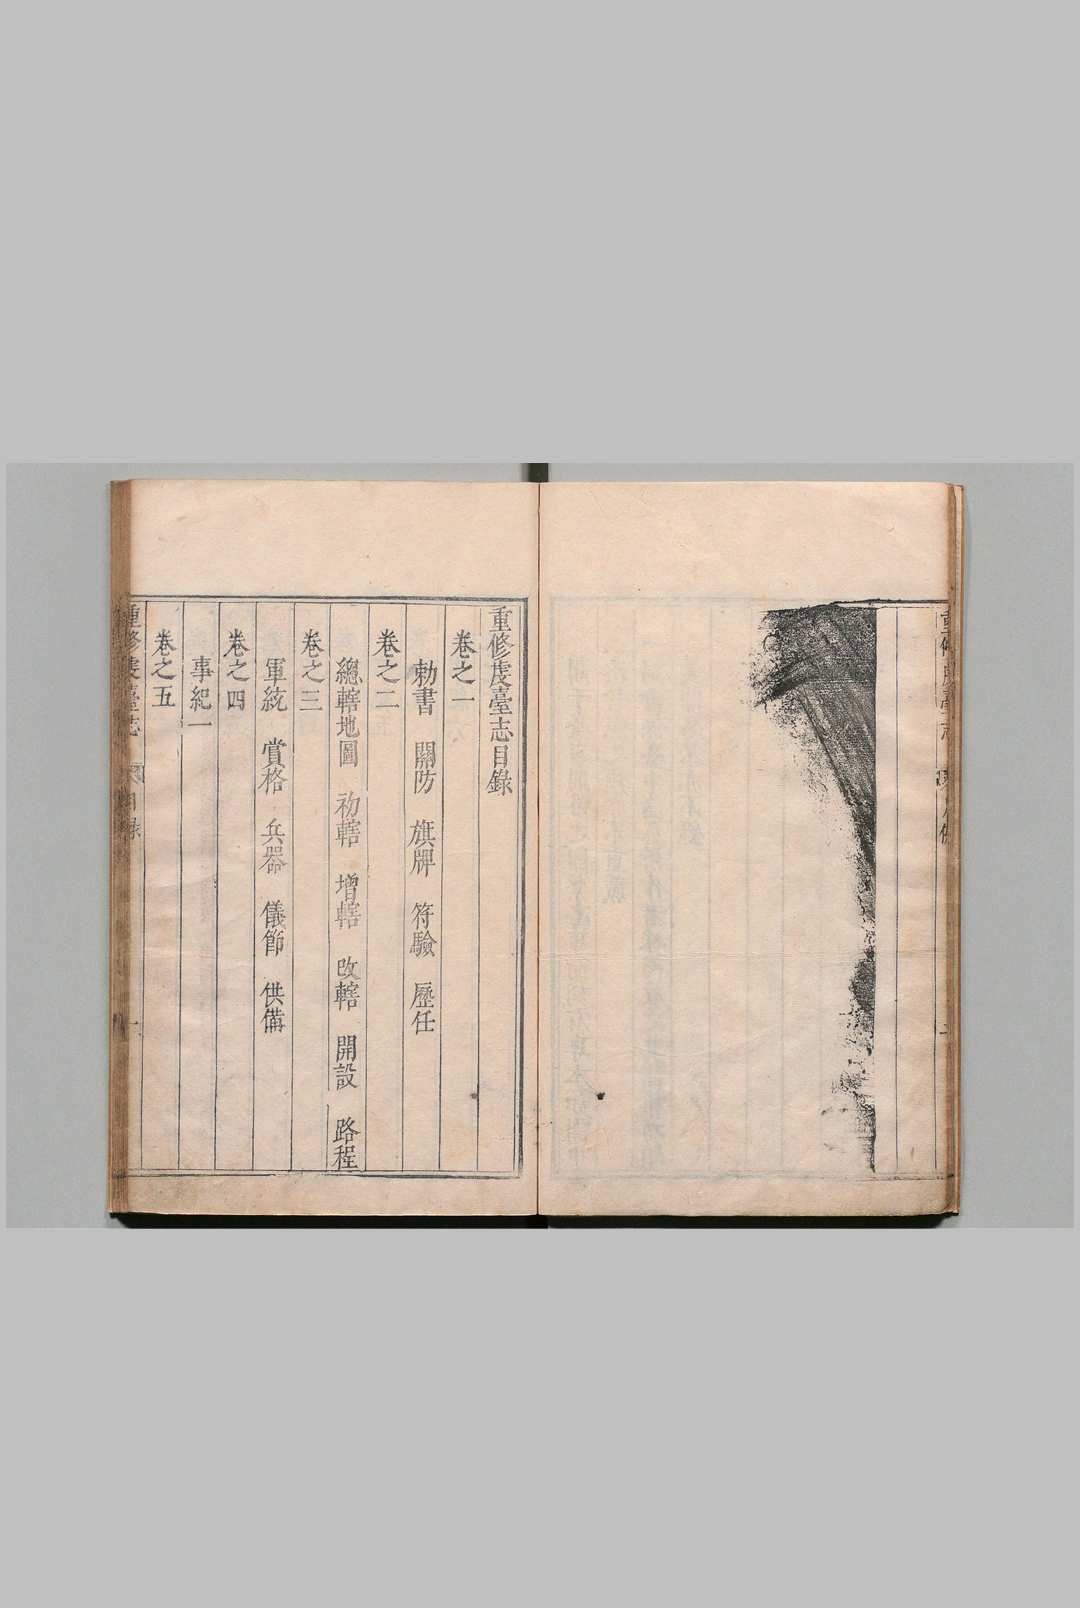 重修虔臺志目錄
卷之一
勅書 關防 旗牌 符驗 歷任
卷之二
總轄地圖 初轄 增轄 改轄 開設 路程
卷之三
軍統 賞格 兵器 儀節 供備
卷之四
事紀一
卷之五
重修虔臺志 目錄 一